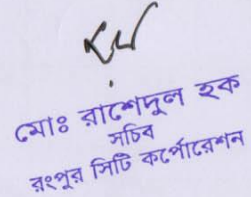 মোঃ রাশেদুল হক
সচিব
রংপুর সিটি কর্পোরেশন